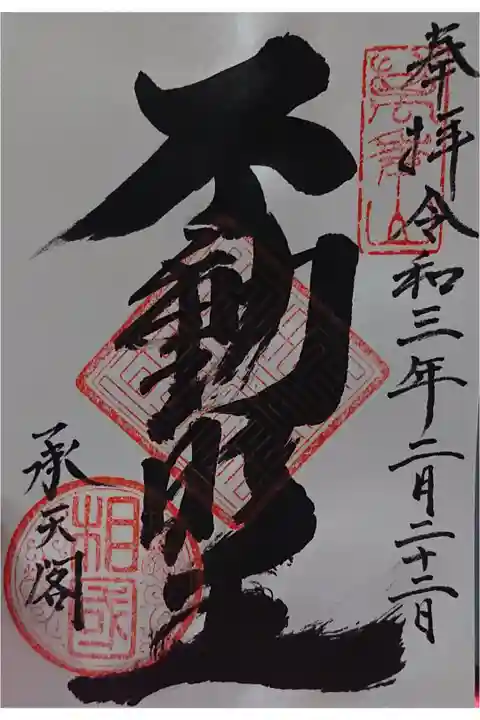 奉拝 令和三年二月二十二日
萬年山
不動明王
承天閣
相国